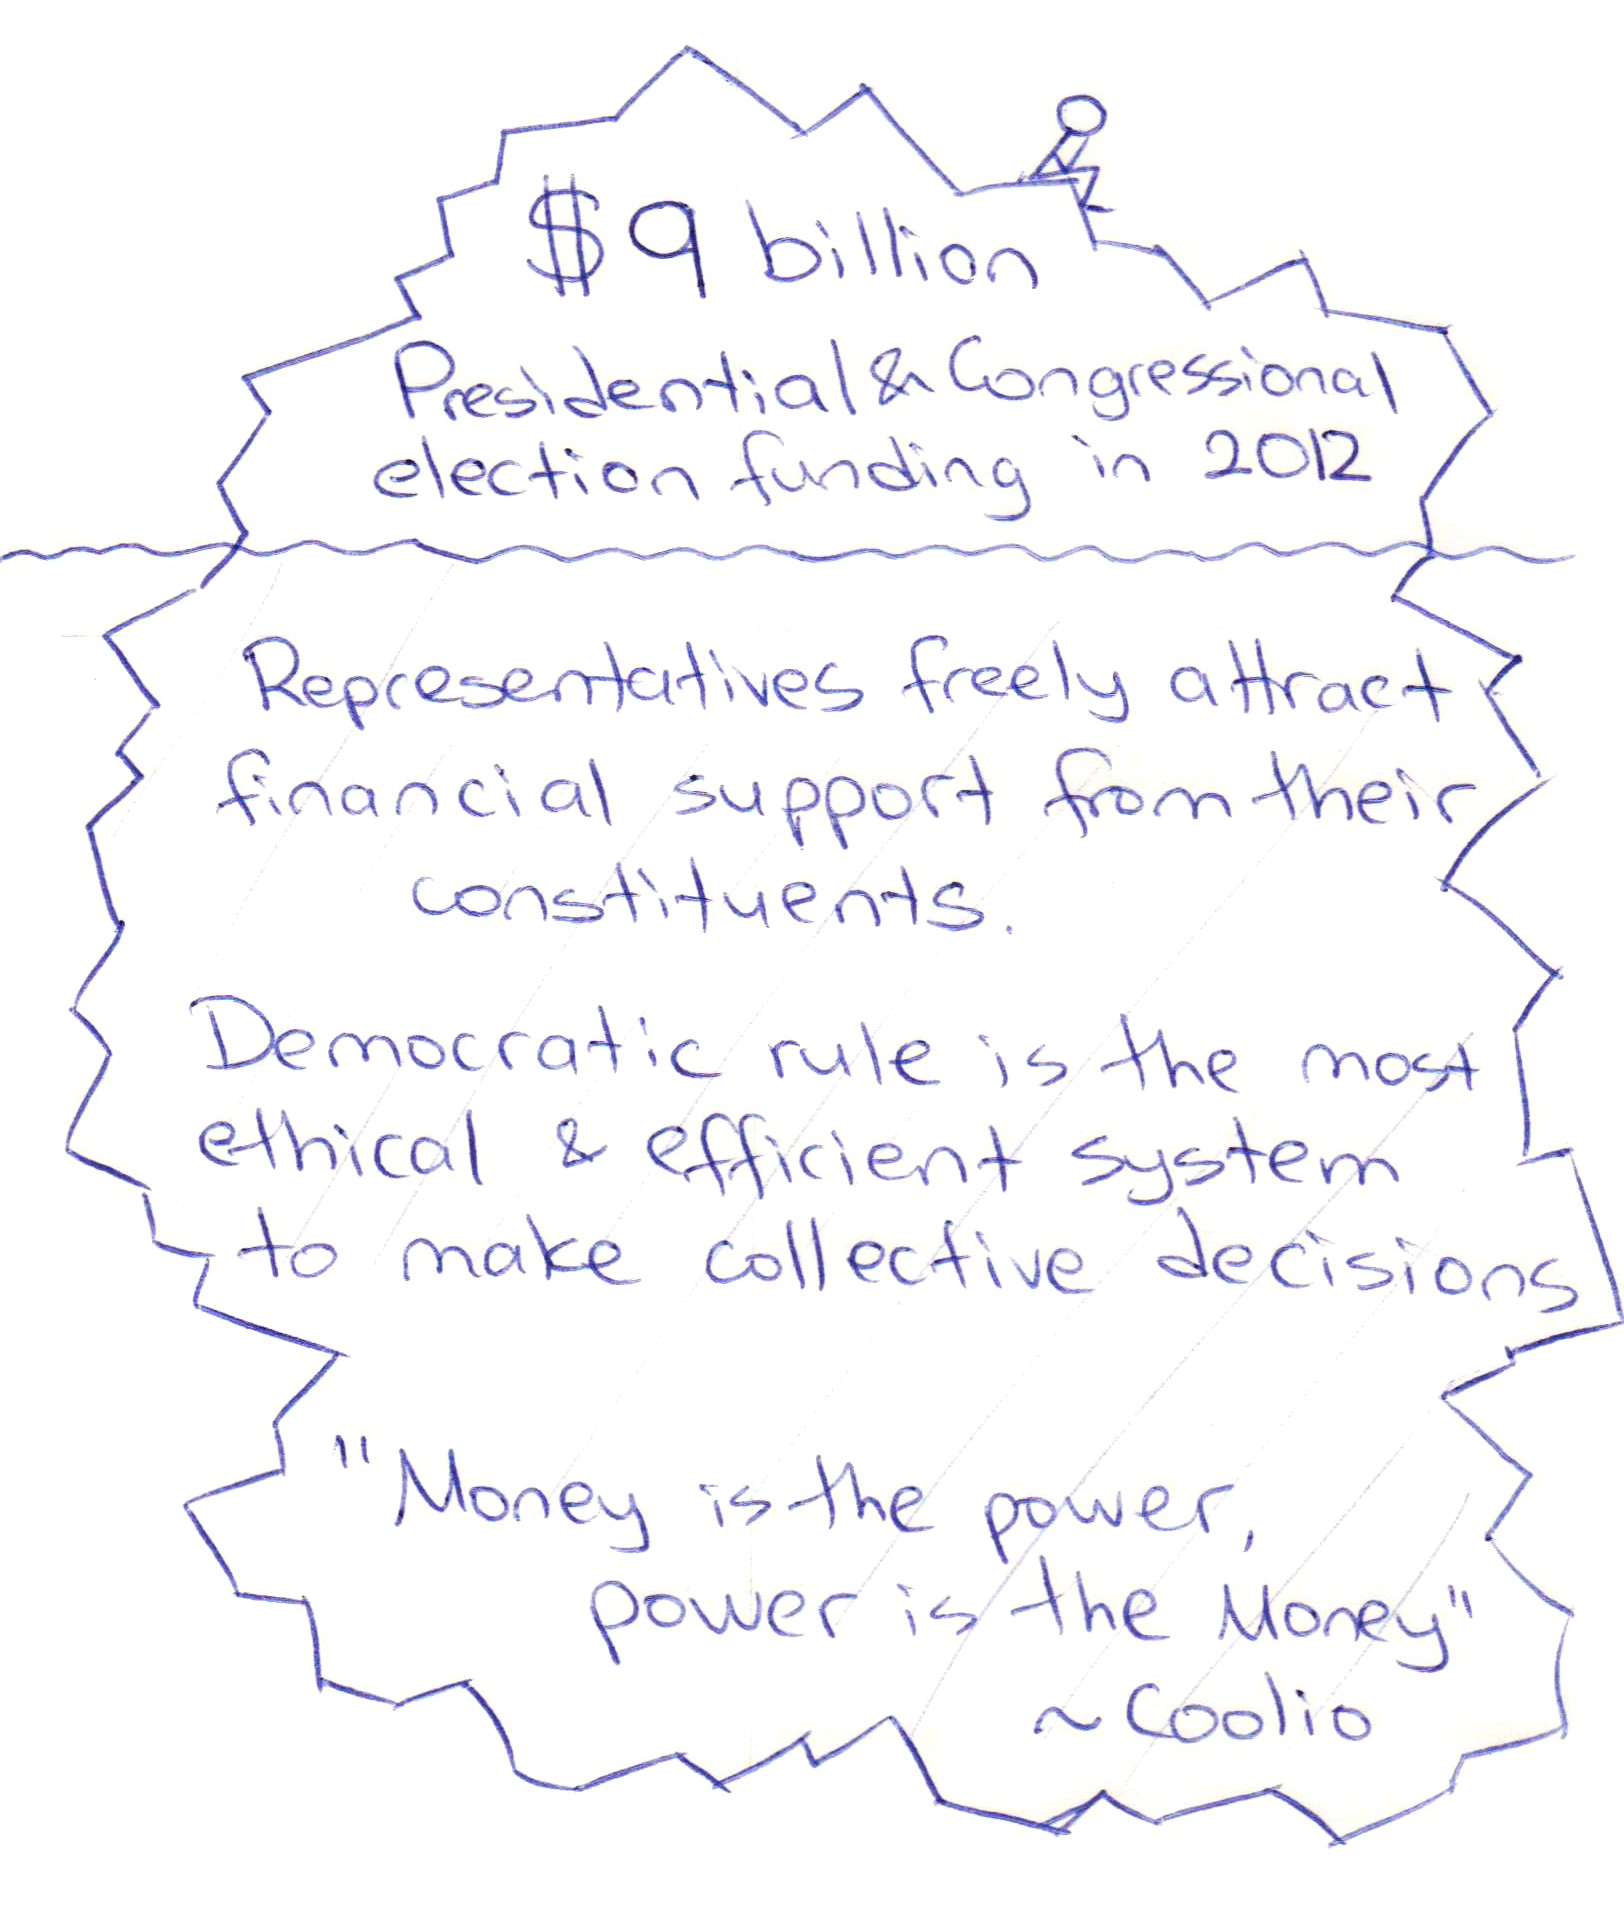 $9 billion
Presidential & Congressional
election funding in 2012
Representatives freely attract
financial support from their
constituents.
Democratic rule is the most
ethical & efficient system
to make collective decisions
"Money is the power,
power is the Money"
~ Coolio